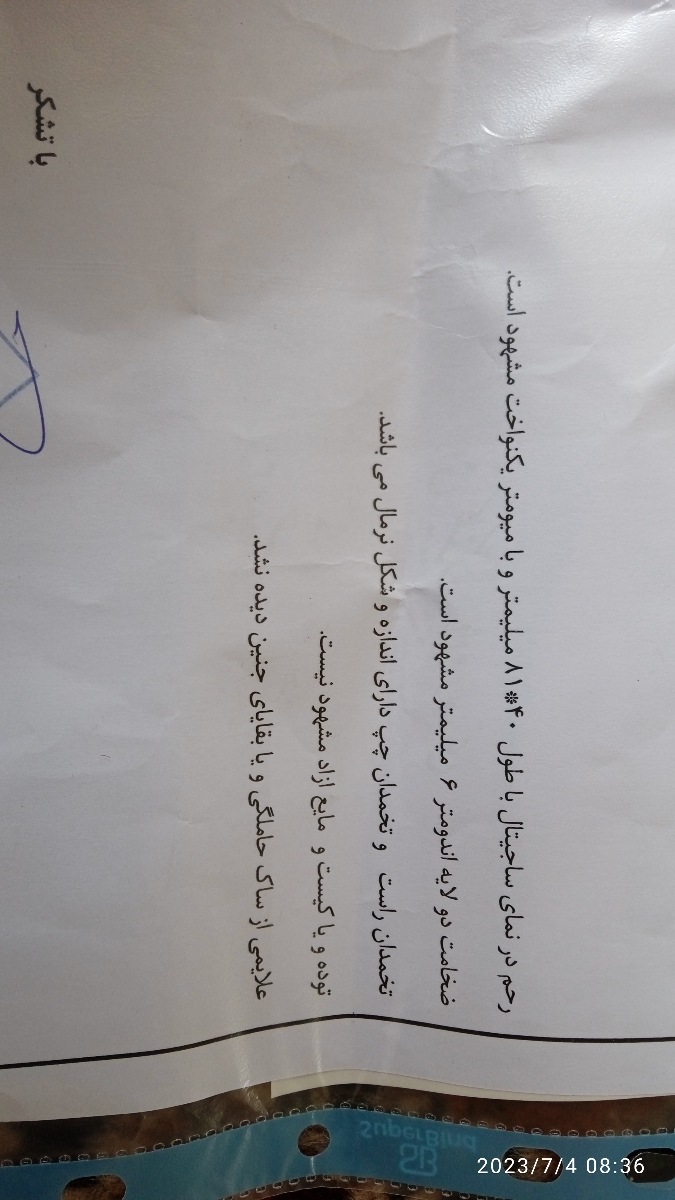 رحم در نمای ساجیتال با طول ۴۰*۸۱ میلیمتر و با میومتر یکنواخت مشهود است.
ضخامت دو لایه اندومتر ۶ میلیمتر مشهود است.
تخمدان راست و تخمدان چپ دارای اندازه و شکل نرمال می باشد.
توده و یا کیست و مایع ازاد مشهود نیست.
علایمی از ساک حاملگی و یا بقایای جنین دیده نشد.
با تشکر
SuperBind
SB
2023/7/4 08:36